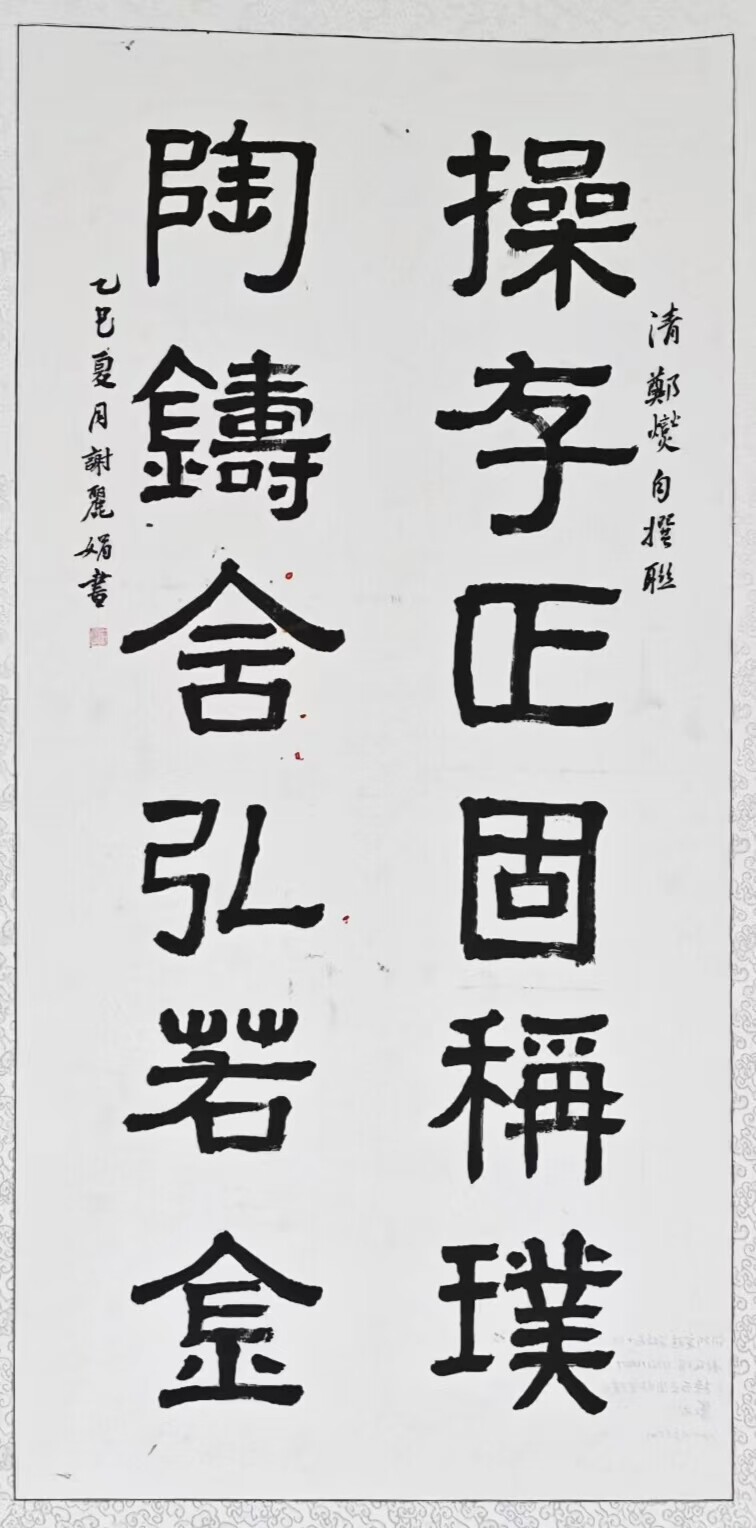 清鄭燮自撰聯
操存正固稱璞
陶鑄含弘若金
乙巳夏月謝麗娟書